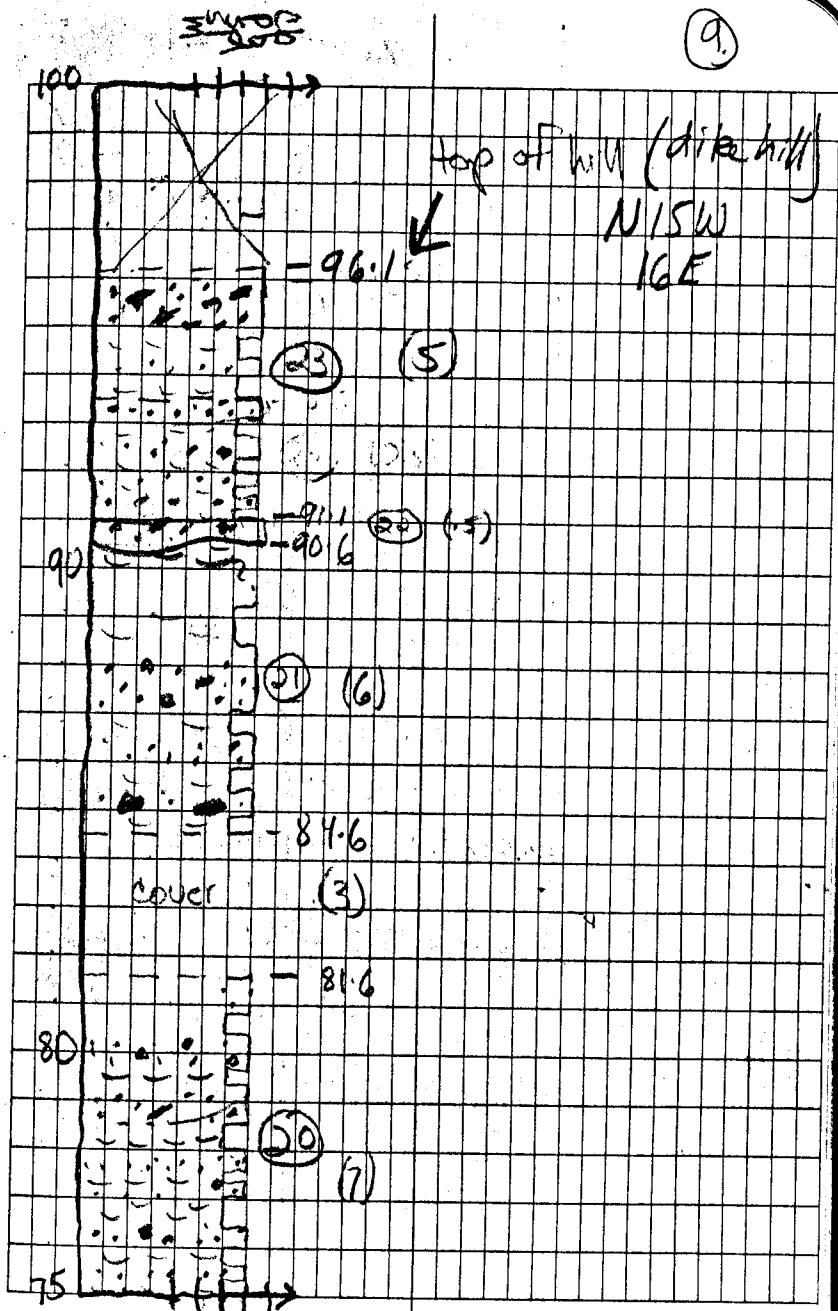 9.
100
top of hill (dike hill)
N15W
16E
96.1
23 (5)
91.1
(.5)
90.6
90
21 (6)
84.6
cover (3)
81.6
80
20
(7)
75